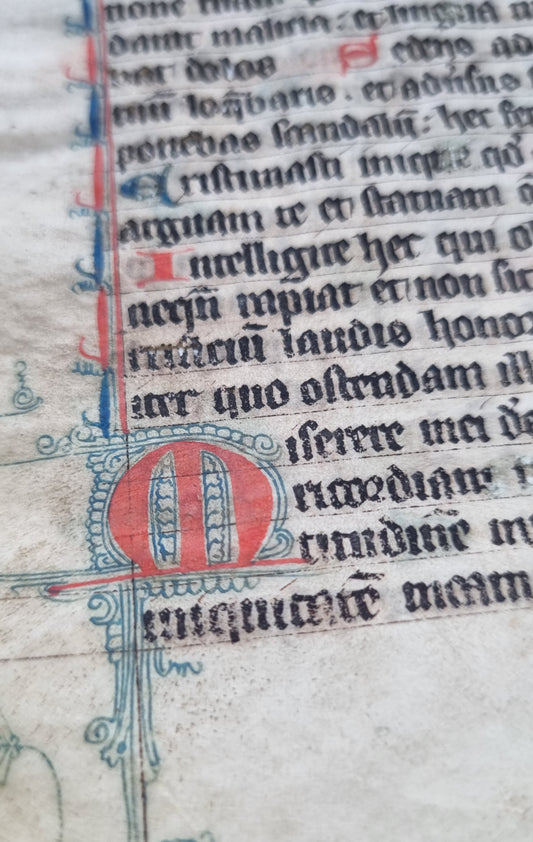 dauit malicia : et lingua
bat dolos Sedens ad
tuū loq̄baris . et aduſus
ponebas ſcandalū : hec fe
Exiſtimaſti inique qď
arguam te et ſtatuam
Intelligite hec qui ob
neqñ rapiat et non ſit
laudis honor
iter quo oſtendam ill
Miſerere mei ds̄
ricordiam
titudinē
iniquitatē meam